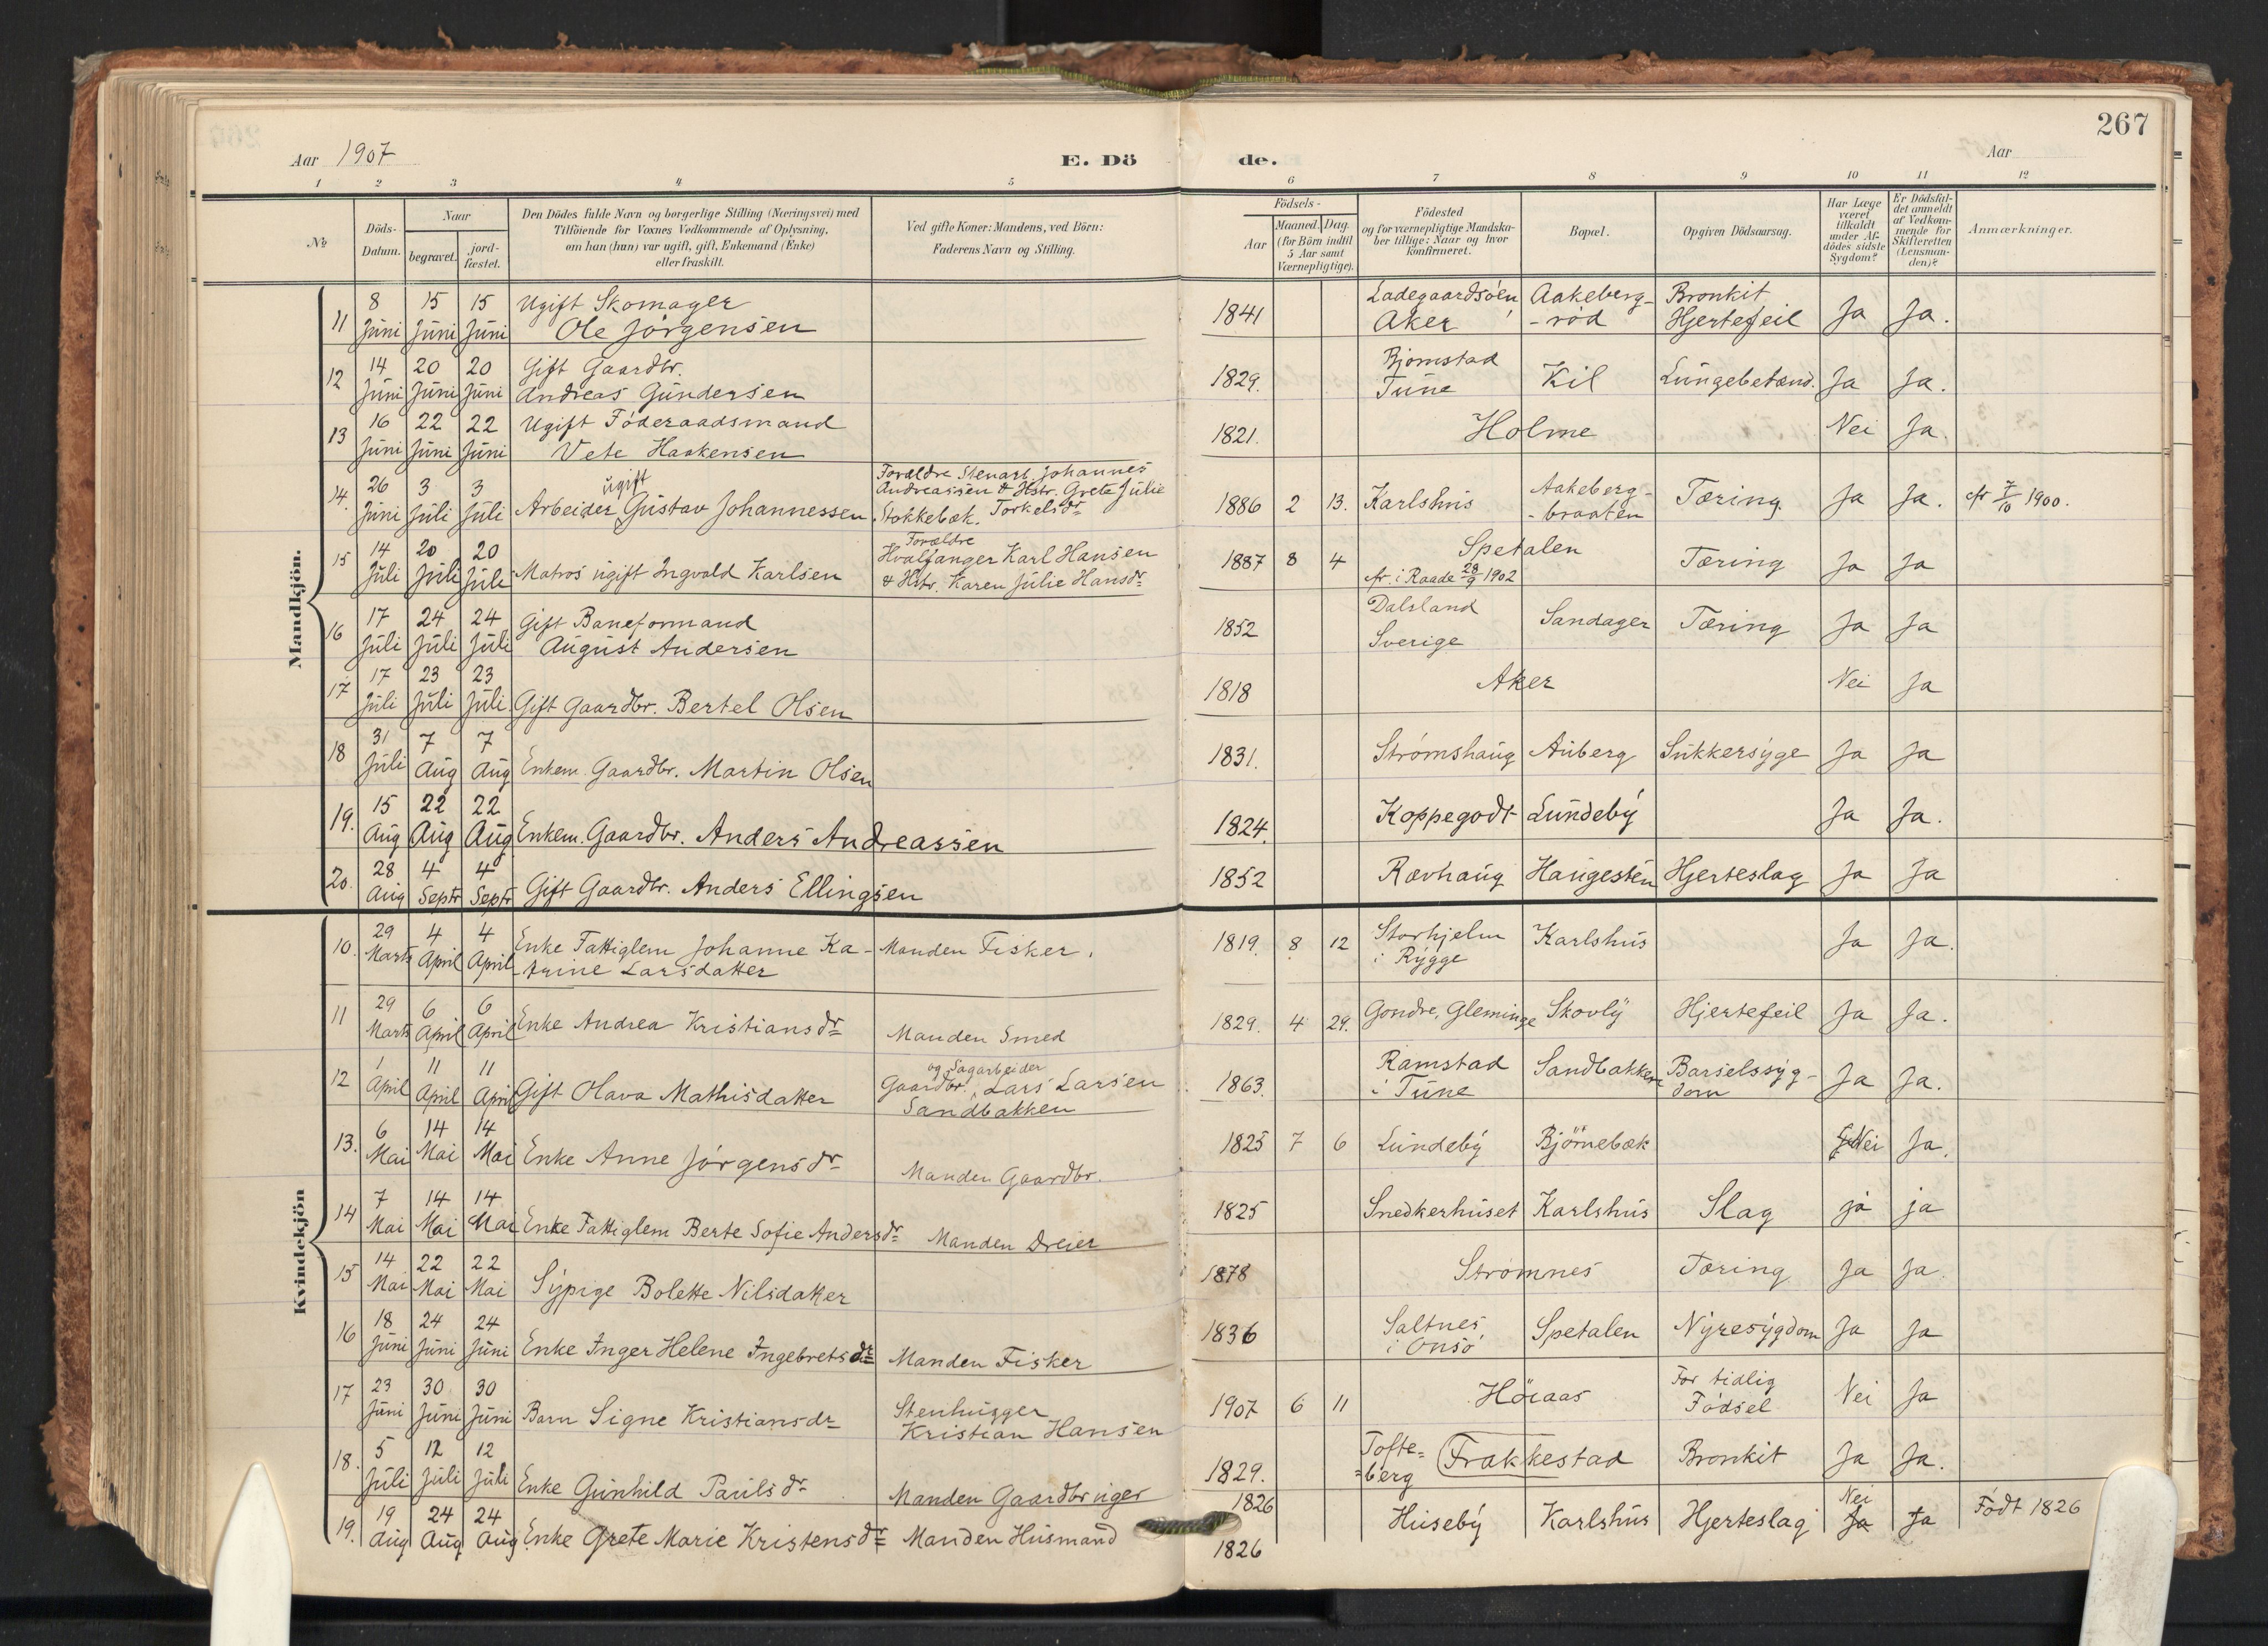 267
Aar 1907
E. Dö de.
Aar
1 2 3 4 5 6 7 8 9 10 11 12
No
Döds-Datum.
Naar
begravet.
jord-fæstet.
Den Dödes fulde Navn og borgerlige Stilling (Næringsvei) med
Tilföiende for Voxnes Vedkommende af Oplysning,
om han (hun) var ugift, gift, Enkemand (Enke)
eller fraskilt.
Ved gifte Koner: Mandens, ved Börn:
Faderens Navn og Stilling.
Födsels-
Aar
Maaned. Dag.
(for Börn indtil
5 Aar samt
Værnepligtige).
Födested
og for værnepligtige Mandska-
ber tillige: Naar og hvor
konfirmeret.
Bopæl.
Opgiven Dödsaarsag.
Har Læge
været
tilkaldt
under Af-
dödes sidste
Sygdom?
Er Dödsfal-
det anmeldt
af Vedkom-
mende for
Skifteretten
(Lensman-
den)?
Anmærkninger.
Mandkjön.
11 8 Juni 15 Juni 15 Juni Ugift Skomager
Ole Jörgensen 1841 Ladegaardsöen, Aker Aakeberg-
-röd Bronkit
Hjertefeil Ja Ja.
12 14 Juni 20 Juni 20 Juni Gift Gaardbr.
Andreas Gundersen 1829. Bjornstad
Tune Kil Lungebetænd. Ja Ja.
13 16 Juni 22 Juni 22 Juni Ugift Föderaadsmand
Vete Haakensen 1821. Holme Nei Ja.
14. 26 Juni 3 Juli 3 Juli ugift
Arbeider Gustav Johannessen Forældre Stenarb. Johannes
Andreassen & Hstr. Grete Julie
Stokkebæk. Torkelsdr 1886 2 13. Karlshus Aakeberg-
-braaten Tæring. Ja Ja. cfr 7/10 1900.
15 14 Juli 20 Juli 20 Juli Matros ugift Ingvald Karlsen Forældre
Hvalfanger Karl Hansen
& Hstr. Karen Julie Hansdr 1887 8 4 Spetalen
cfr. i Raade 28/9 1902 Tæring Ja Ja
16 17 Juli 24 Juli 24 Juli Gift Baneformand
August Andersen 1852 Dalsland
Sverige Sandager Tæring Ja Ja
17 17 Juli 23 Juli 23 Juli Gift Gaardbr. Bertel Olsen 1818 Aker Nei Ja
18 31 Juli 7 Aug 7 Aug Enkem. Gaardbr. Martin Olsen 1831. Strömshaug Auberg Sukkersyge Ja Ja
19. 15 Aug 22 Aug 22 Aug Enkem. Gaardbr. Anders Andreassen 1824. Koppegodt Lundeby Ja Ja.
20. 28 Aug 4 Septr 4 Septr Gift Gaardbr. Anders Ellingsen 1852 Rævhaug Haugesten Hjerteslag Ja Ja
Kvindekjön
10. 29 Marts 4 April 4 April Enke Fattiglem Johanne Ka-
-trine Larsdatter Manden Fisker. 1819. 8 12 Storhjelm
i Rygge Karlshus Ja Ja.
11 29 Marts 6 April 6 April Enke Andrea Kristiansdr Manden Smed 1829. 4 29. Gondre, Gleminge Skovly Hjertefeil Ja Ja.
12 1 April 11 April 11 April Gift Olava Mathisdatter og Sagarbeider
Gaardbr. Lars Larsen
Sandbakken 1863. Ramstad
i Tune Sandbakken Barselssyg-
dom Ja Ja.
13. 6 Mai 14 Mai 14 Mai Enke Anne Jörgensdr Manden Gaardbr. 1825 7 6 Lundeby Björnebæk Nei Ja.
14 7 Mai 14 Mai 14 Mai Enke Fattiglem Berte Sofie Andersdr Manden Dreier 1825 Snedkerhuset Karlshus Slag ja ja
15 14 Mai 22 Mai 22 Mai Sypige Bolette Nilsdatter 1878 Strömnes Tæring Ja Ja
16 18 Juni 24 Juni 24 Juni Enke Inger Helene Ingebretsdr Manden Fisker 1836 Saltnes
i Onsö Spetalen Nyresygdom Ja Ja
17 23 Juni 30 Juni 30 Juni Barn Signe Kristiansdr Stenhugger
Kristian Hansen 1907 6 11 Höiaas For tidlig
Födsel Nei Ja
18. 5 Juli 12 Juli 12 Juli Enke Gunhild Paulsdr Manden Gaardbruger 1829. Tofte-
=berg Frakkestad Bronkit Ja Ja.
19. 19 Aug 24 Aug 24 Aug Enke Grete Marie Kristensdr Manden Husmand 1826
1826 Huseby Karlshus Hjerteslag Nei
Ja Ja Födt 1826